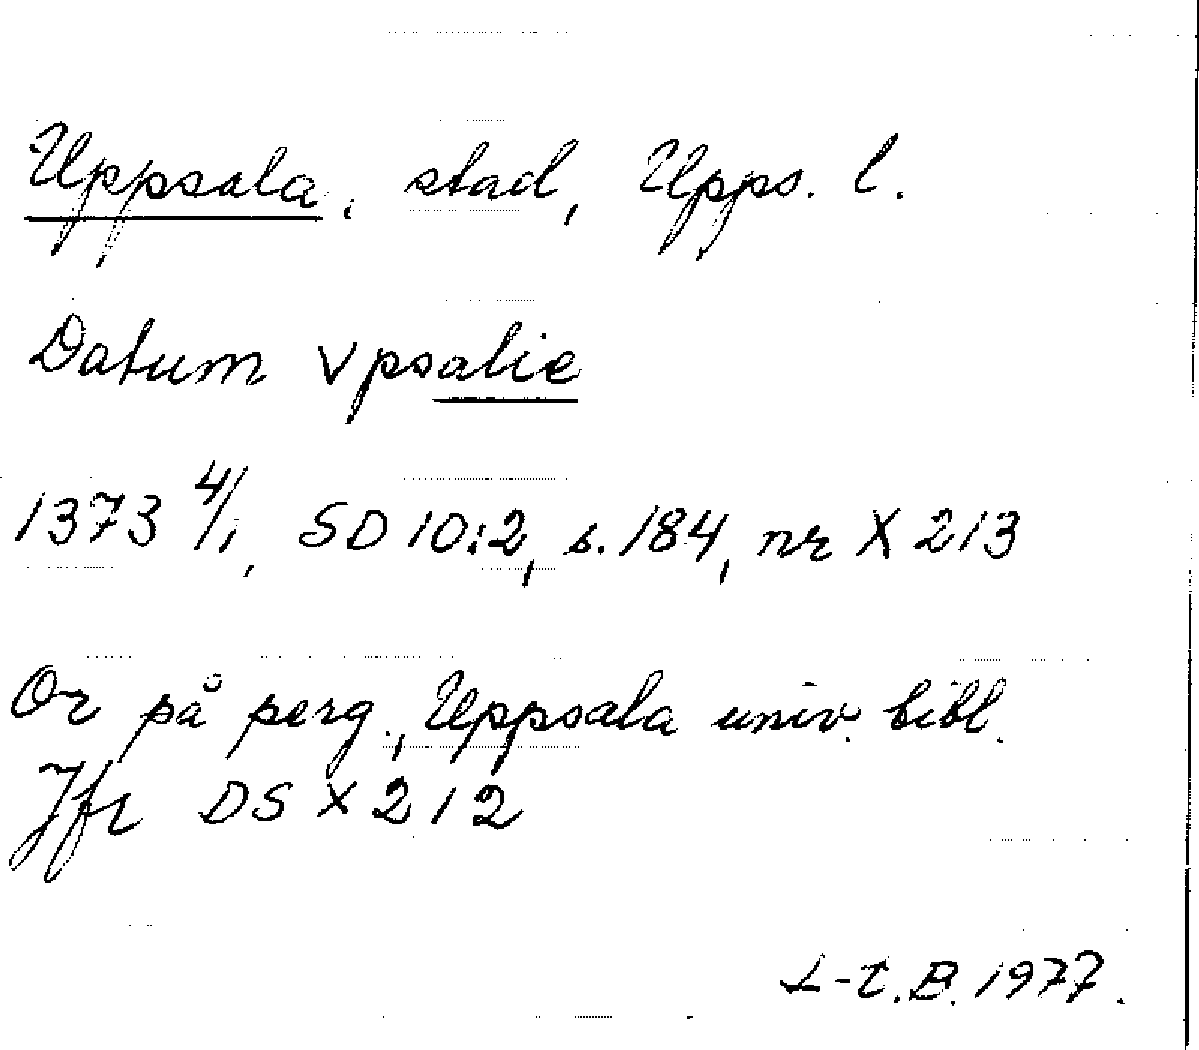 Uppsala, stad, Upps. l.
Datum Vpsalie
1373 4/1, SD 10:2, s. 184, nr X 213
Or på perg., Uppsala univ. bibl.
Jfr DS X 212
L-E.B. 1977.